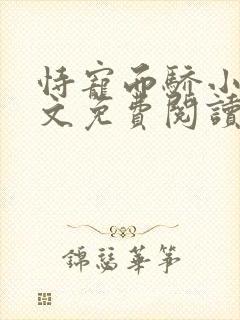 恃寵而驕小
文免費閱讀
錦瑟華箏